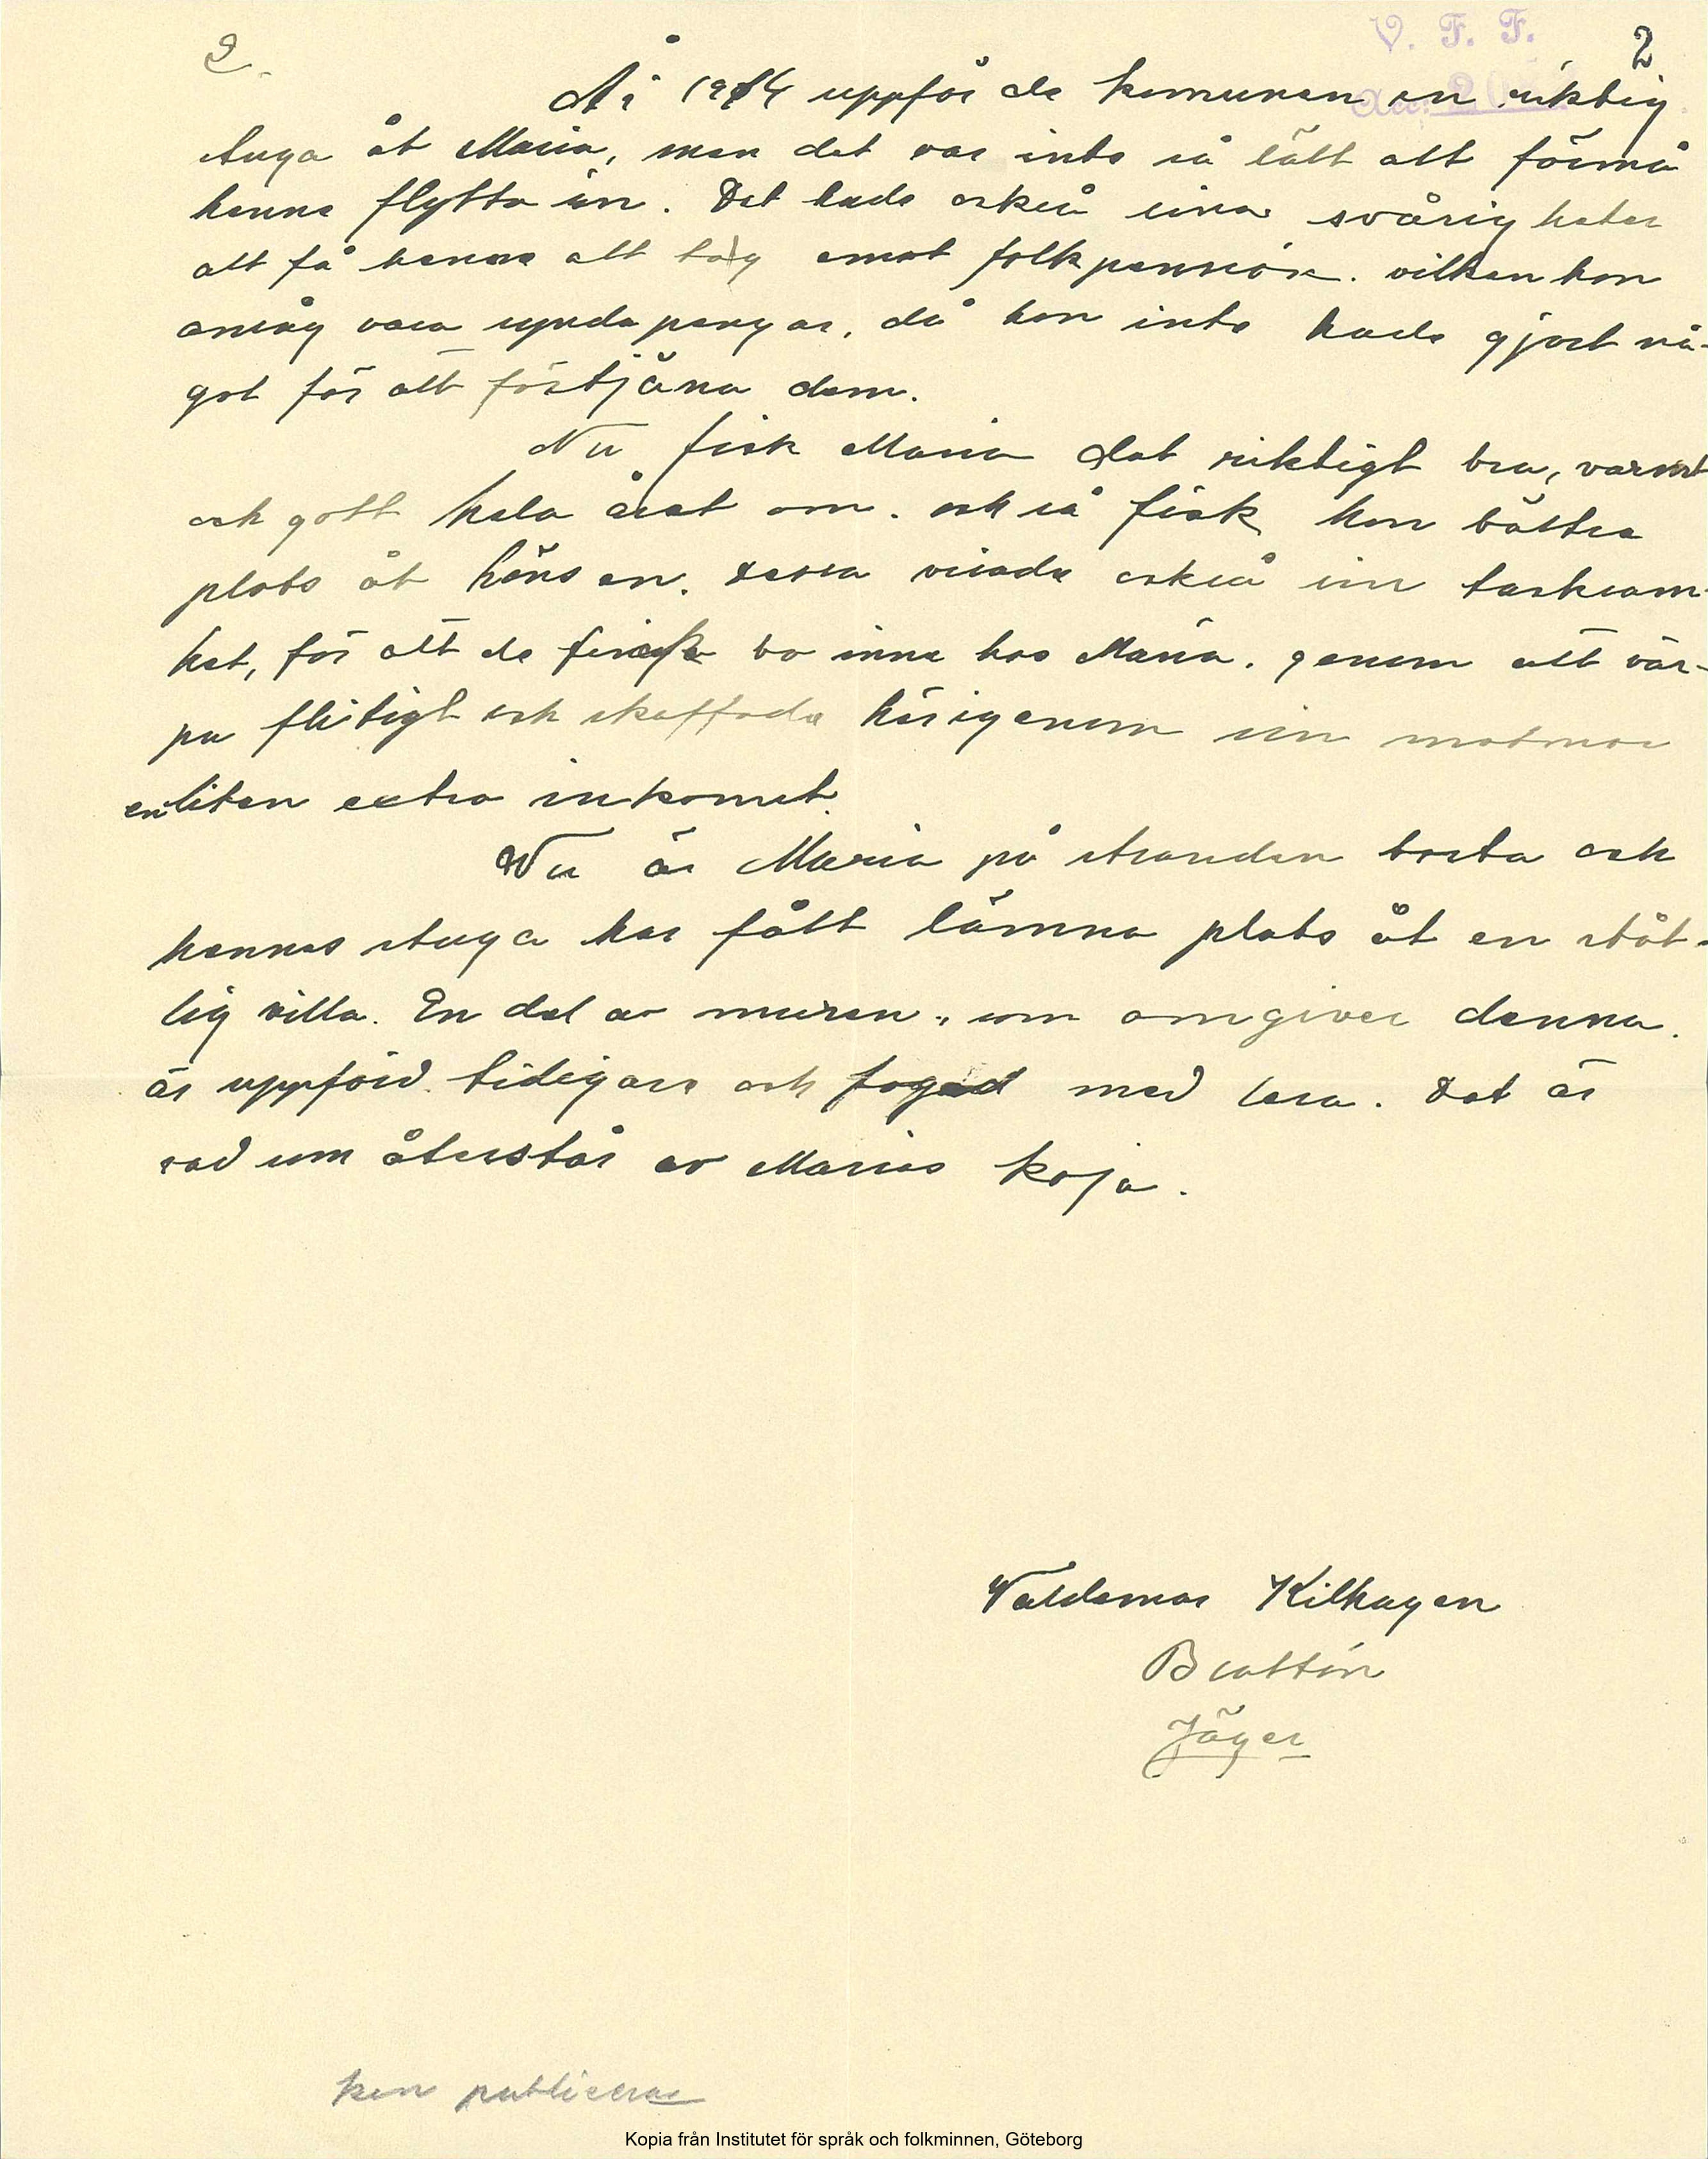 2.
V. F. F.
2
År 1914 uppförde komunen en riktig
stuga åt Maria, men det var inte så lätt att förmå
henne flytta in. Det hade också sina svårigheter
att få henne att tag emot folkpension. vilken hon
ansåg vara syndapengar, då hon inte hade gjort nå-
got för att förtjäna dem.
Nu fick Maria det riktigt bra, varmt
och gott hela året om. och så fick hon bättre
plats åt hönsen. Dessa visade också sin tacksam-
het, för att de fingo bo inne hos Maria. genom att vär-
pa flitigt och skaffade härigenom sin matmor
en liten extra inkomst.
Nu är Maria på stranden borta och
hennes stuga har fått lämna plats åt en ståt-
lig villa. En del av muren, som omgiver denna.
är uppförd tidigare och fogad med lera. Det är
vad som återstår av Marias koja.
Valdemar Kilhagen
Brattön
Jäger
kan publiceras
Kopia från Institutet för språk och folkminnen, Göteborg